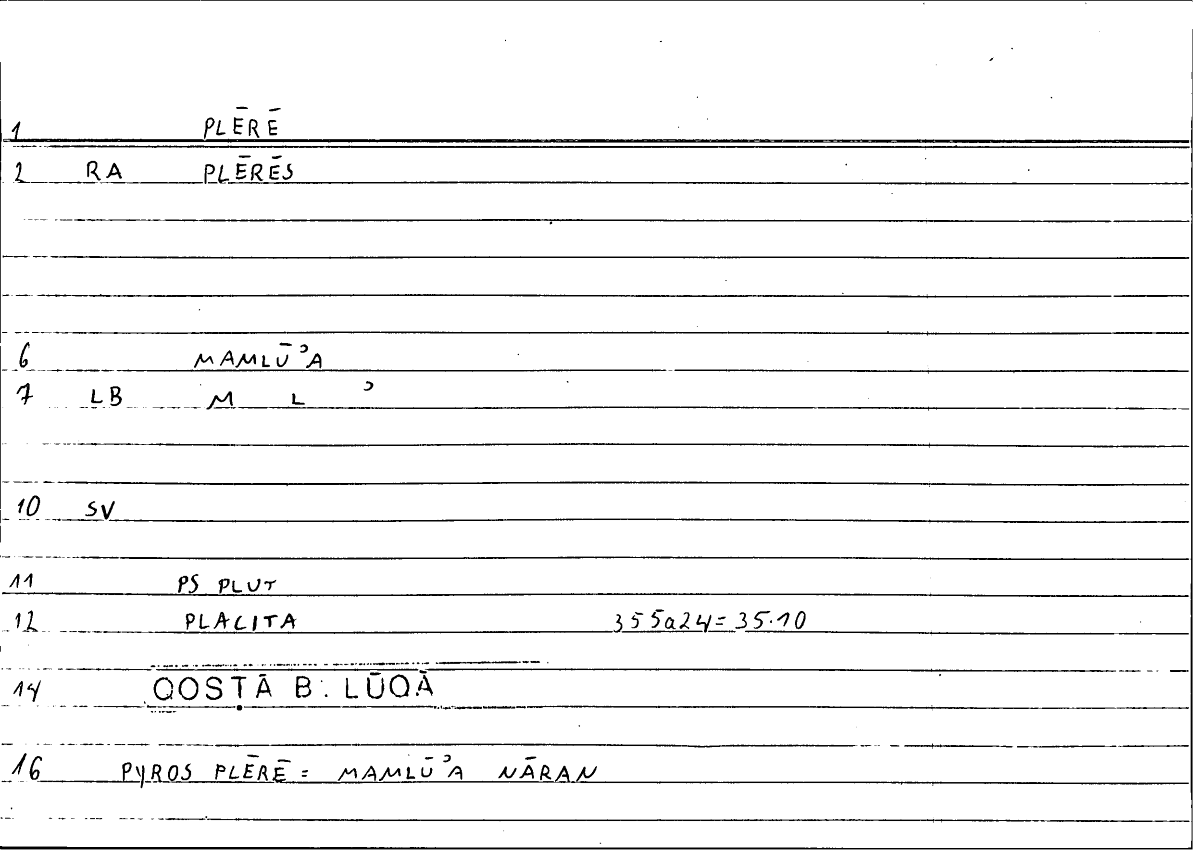 1 PLĒRĒ
2 RA PLĒRĒS
6 MAMLŪʾA
7 LB M L ʾ
10 SV
11 PS PLUT
12 PLACITA 355a24=35.10
14 QOSṬĀ B. LŪQĀ
16 PYROS PLĒRĒ = MAMLŪʾA NĀRAN